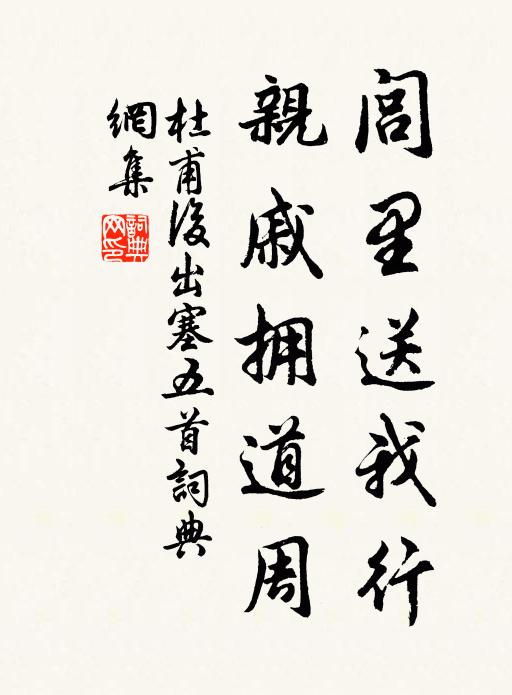 閭里送我行
親戚拥道周
杜甫後出塞五首詞典
網集
詞典
网印